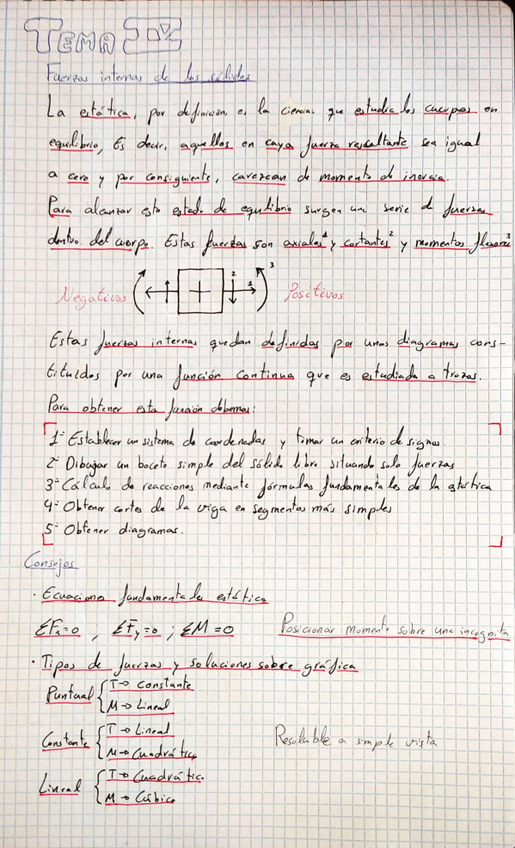 TEMA IV
Fuerzas internas de los sólidos
La estática, por definición, es la ciencia que estudia los cuerpos en
equilibrio, Es decir, aquellos en cuya fuerza resultante sea igual
a cero y por consiguiente, carezcan de momento de inercia.
Para alcanzar este estado de equilibrio surgen una serie de fuerzas
dentro del cuerpo. Estas fuerzas son axiales¹ y cortantes² y momentos flexores³
Negativos + 2 1 3 Positivos
Estas fuerzas internas quedan definidas por unos diagramas cons-
tituidos por una función continua que es estudiada a trozos.
Para obtener esta función debemos:
1º Establecer un sistema de coordenadas y tomar un criterio de signos
2º Dibujar un boceto simple del sólido libre situando solo fuerzas
3º Cálculo de reacciones mediante fórmulas fundamentales de la estática
4º Obtener cortes de la viga en segmentos más simples
5º Obtener diagramas.
Consejos
· Ecuaciones fundamentales estática
ΣFx=0 , ΣFy=0 ; ΣM=0 Posicionar momento sobre una incognita
· Tipos de fuerzas y soluciones sobre gráfica
Puntual { T→ Constante
M→ Lineal
Constante { T→ Lineal
M→ Cuadrática
Resoluble a simple vista
Lineal { T→ Cuadrática
M→ Cúbica